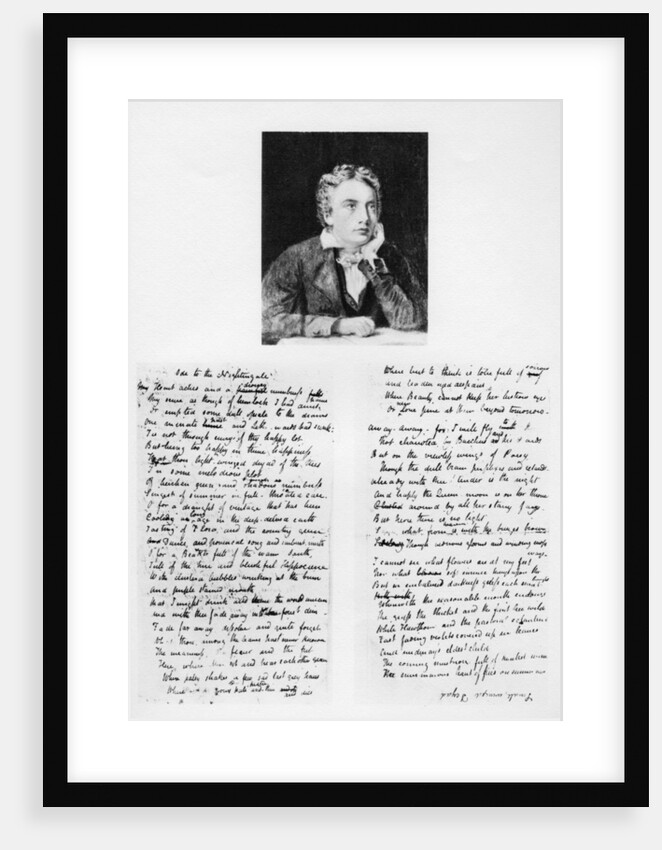 Ode to the Nightingale
My Heart aches and a drowsy numbness
My sense as though of hemlocks I had
Or emptied some dull opiate to the drains
One minute past and Lethe-wards had sunk
Tis not through envy of thy happy lot
But being too happy in thine happiness
That thou light-winged dryad of the trees
In some melodious plot
Of beechen green and shadows numberless
Singest of summer in full-throated ease
O for a draught of vintage that has been
Cooling an age in the deep-delved earth
Tasting of Flora and the country green
And Dance, and provencal song and sunburnt mirth
O for a Beaker full of the warm South
Full of the true and blushful Hippocrene
With cluster'd bubbles winking at the brim
And purple stained mouth
That I might drink and leave the world unseen
And with thee fade away into the forest dim
Fade far away dissolve and quite forget
What thou among the leaves hast never known
The weariness, the fever and the fret
Here, where men sit and hear each other groan
Where palsy shakes a few sad last grey hairs
Where youth grows pale and thin and dies
Where but to think is to be full of sorrow
and leaden eyed despairs
Where Beauty cannot keep her lustrous eyes
Or new love pine at them beyond tomorrow
Away-away-for I will fly to thee
Not charioted by Bacchus and his pards
But on the viewless wings of Poesy
Though the dull brain perplexes and retards
Already with thee! tender is the night
And haply the Queen moon is on her throne
Cluster'd around by all her starry fays
But here there is no light
Save what from heaven is with the breezes blown
Through verdurous glooms and winding mossy
ways
I cannot see what flowers are at my feet
Nor what soft incense hangs upon the
But in embalmed darkness guess each sweet
Wherewith the seasonable month endows
The grass the thicket and the fruit tree wild
White Hawthorn and the pastoral eglantine
Fast fading violets cover'd up in leaves
And midmays eldest child
The coming musk rose full of
The murmurous haunt of flies on summer eves